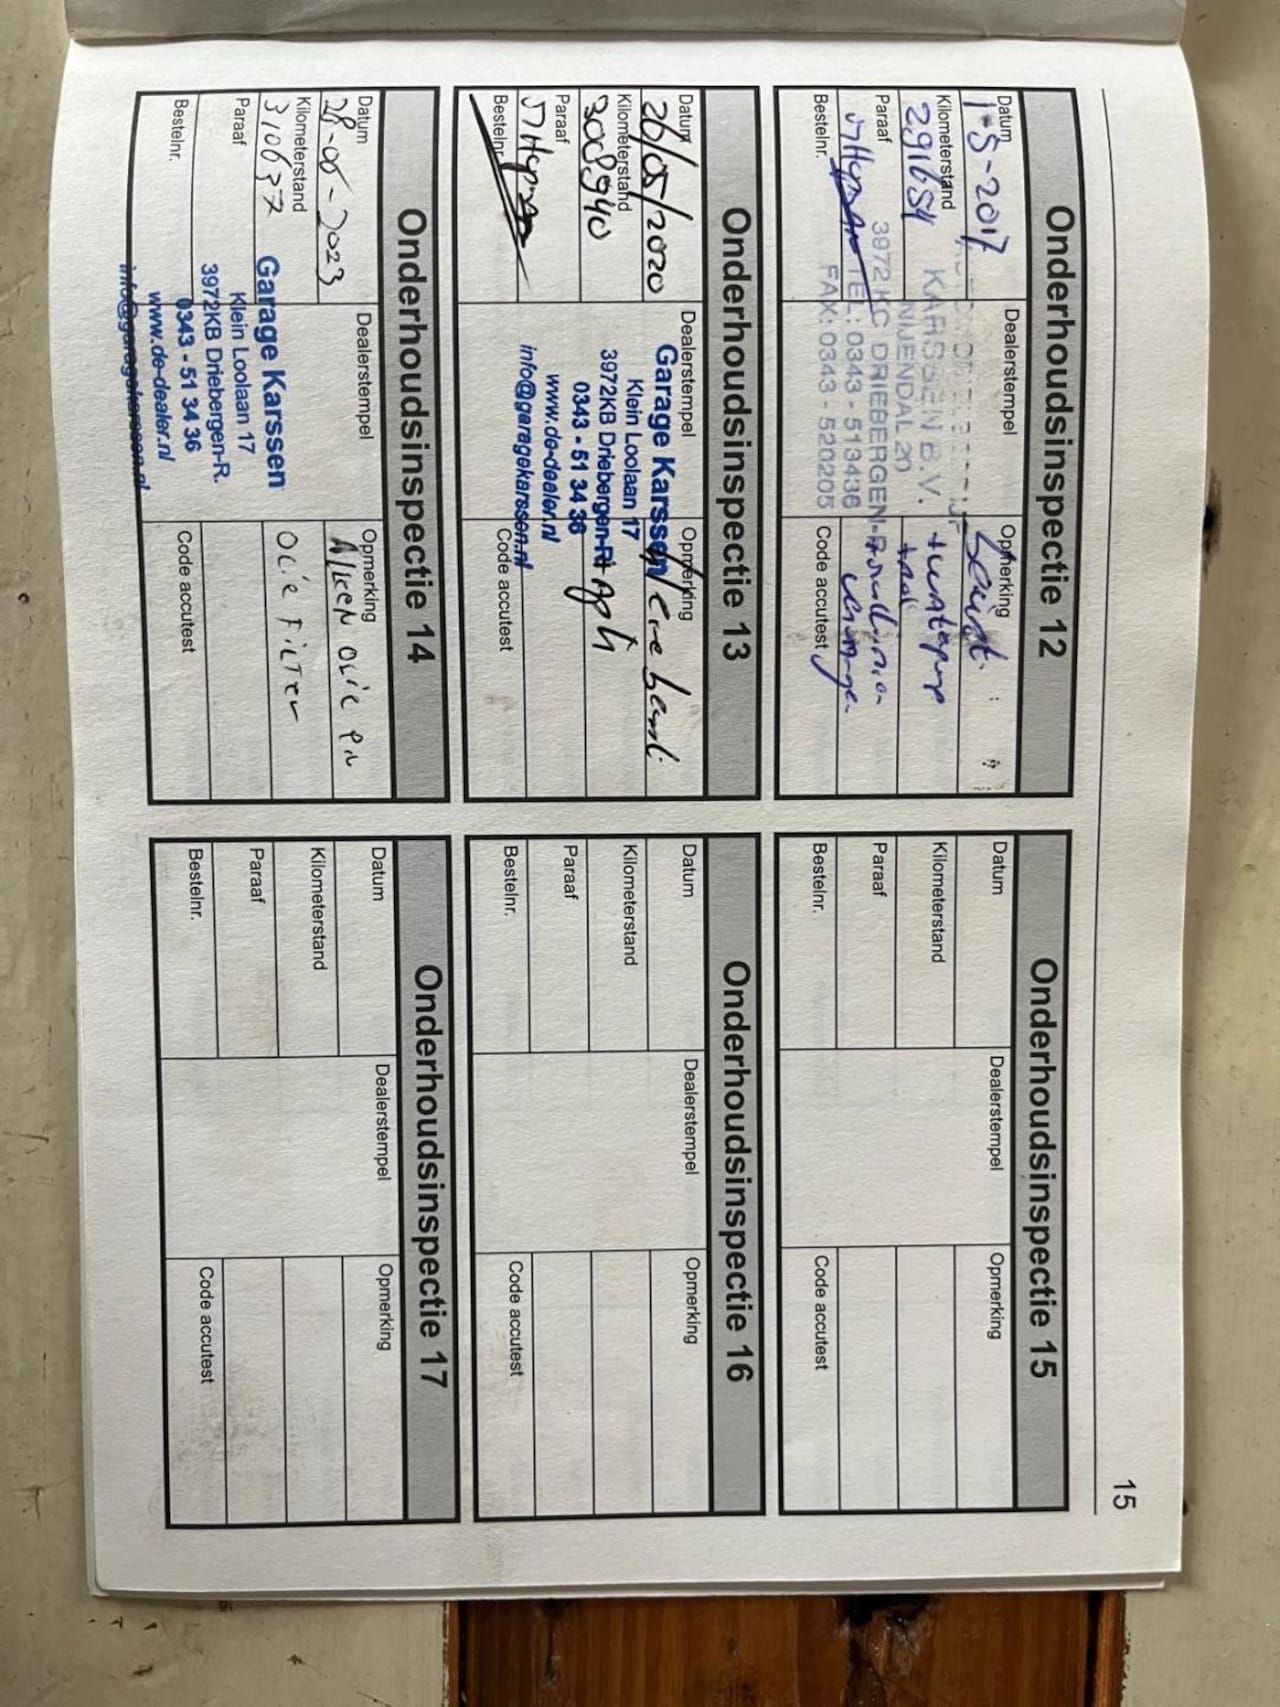 15
Onderhoudsinspectie 12
Datum
1-5-2017
Kilometerstand
291654
Paraaf
Bestelnr.
Dealerstempel
KARSSEN B.V.
NIJENDAL 20
3972 KC DRIEBERGEN-R
TEL: 0343 - 513436
FAX: 0343 - 520205
Opmerking
+ waterpomp
Code accutest
Onderhoudsinspectie 13
Datum
26/05/2020
Kilometerstand
3008940
Paraaf
Bestelnr.
Dealerstempel
Garage Karssen
Klein Loolaan 17
3972KB Driebergen-R.
0343 - 51 34 36
www.de-dealer.nl
info@garagekarssen.nl
Opmerking
+ Apk
Code accutest
Onderhoudsinspectie 14
Datum
28-06-2023
Kilometerstand
310637
Paraaf
Bestelnr.
Dealerstempel
Garage Karssen
Klein Loolaan 17
3972KB Driebergen-R.
0343 - 51 34 36
www.de-dealer.nl
info@garagekarssen.nl
Opmerking
Alleen olie en
olie Filter
Code accutest
Onderhoudsinspectie 15
Datum
Kilometerstand
Paraaf
Bestelnr.
Dealerstempel
Opmerking
Code accutest
Onderhoudsinspectie 16
Datum
Kilometerstand
Paraaf
Bestelnr.
Dealerstempel
Opmerking
Code accutest
Onderhoudsinspectie 17
Datum
Kilometerstand
Paraaf
Bestelnr.
Dealerstempel
Opmerking
Code accutest